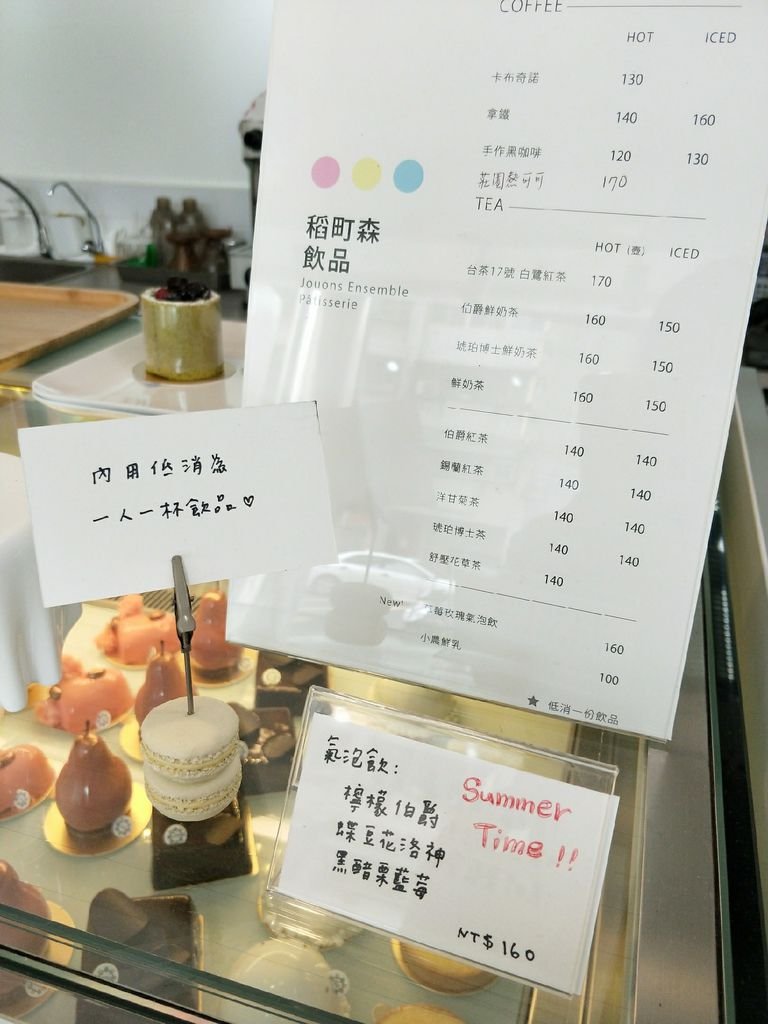 COFFEE
HOT ICED
卡布奇諾 130
拿鐵 140 160
手作黑咖啡 120 130
莊園熱可可 170
TEA
HOT (壺) ICED
台茶17號 白鷺紅茶 170
伯爵鮮奶茶 160 150
琥珀博士鮮奶茶 160 150
鮮奶茶 160 150
伯爵紅茶 140 140
錫蘭紅茶 140 140
洋甘菊茶 140 140
琥珀博士茶 140 140
舒壓花草茶 140
New! 莓玫瑰氣泡飲 160
小農鮮乳 100
★ 低消一份飲品
稻町森
飲品
Jouons Ensemble
Pâtisserie
內用低消為
一人一杯飲品♡
氣泡飲:
檸檬伯爵
蝶豆花洛神
黑醋栗藍莓
Summer
Time !!
NT$160